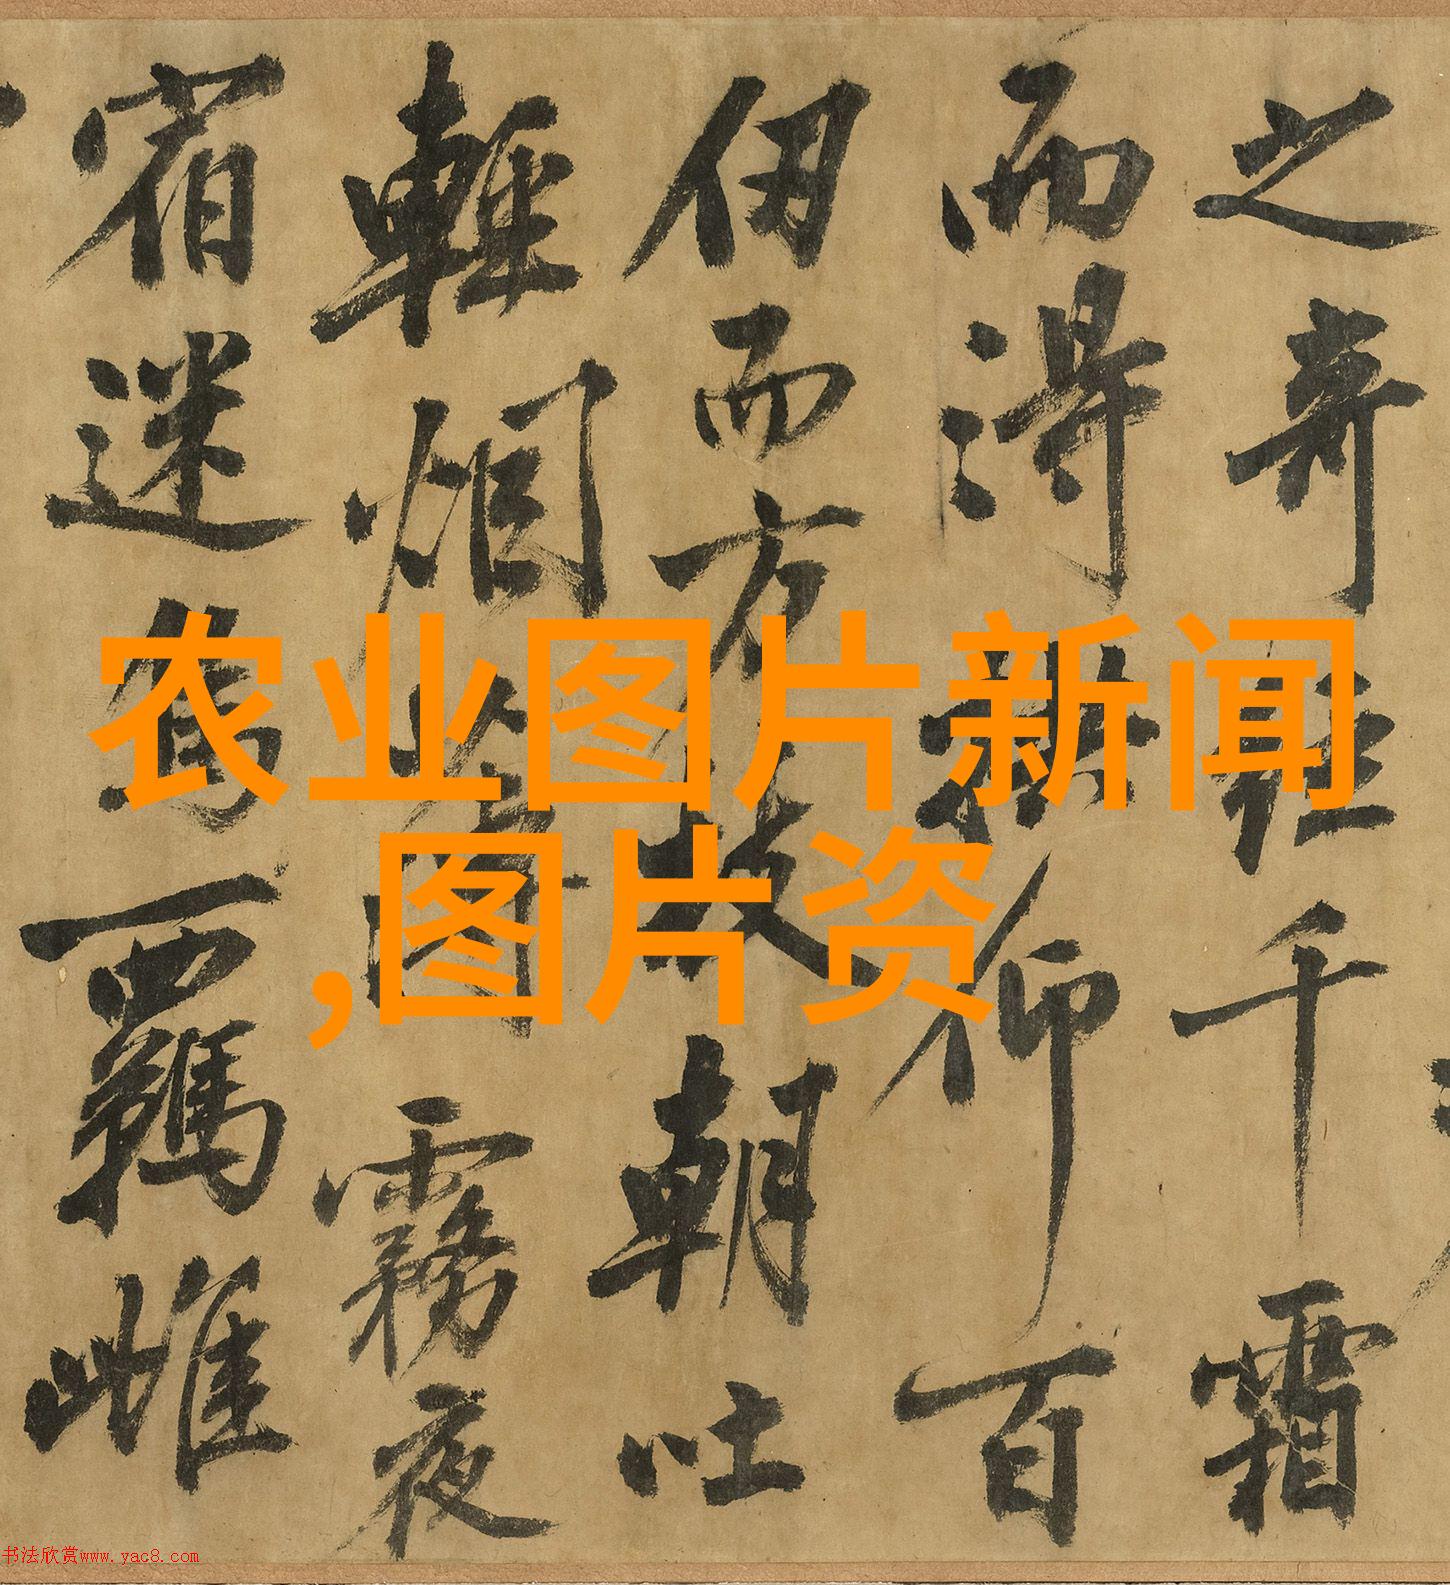 之奇經千霜
而得拱仰百
仞而方枝朝吐
輕烟薄霧夜
宿迷鳥羈雌
农业图片新闻
,图片资
书法欣赏www.yac8.com